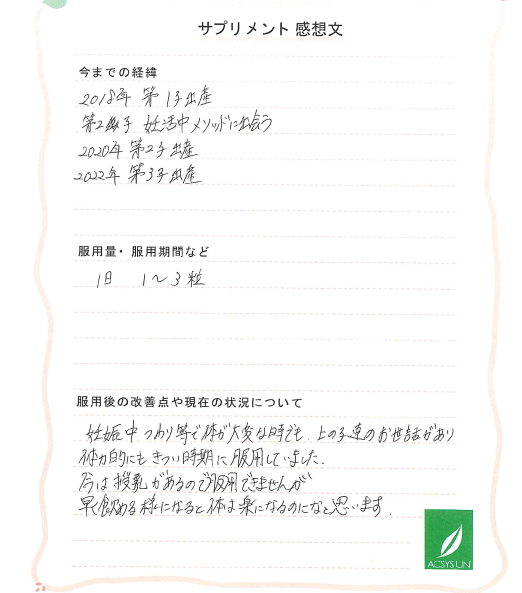 サプリメント 感想文
今までの経緯
2018年 第1子出産
第2子 妊活中 メソッドに出会う
2020年 第2子出産
2022年 第3子出産
服用量・服用期間など
1日 1〜3粒
服用後の改善点や現在の状況について
妊娠中 つわり等で体が大変な時でも、上の子達のお世話があり
体力的にもきつい時期に服用していました.
今は授乳があるので服用できませんが
早く飲める様になると体は楽になるのになと思います.
ACSYSUN